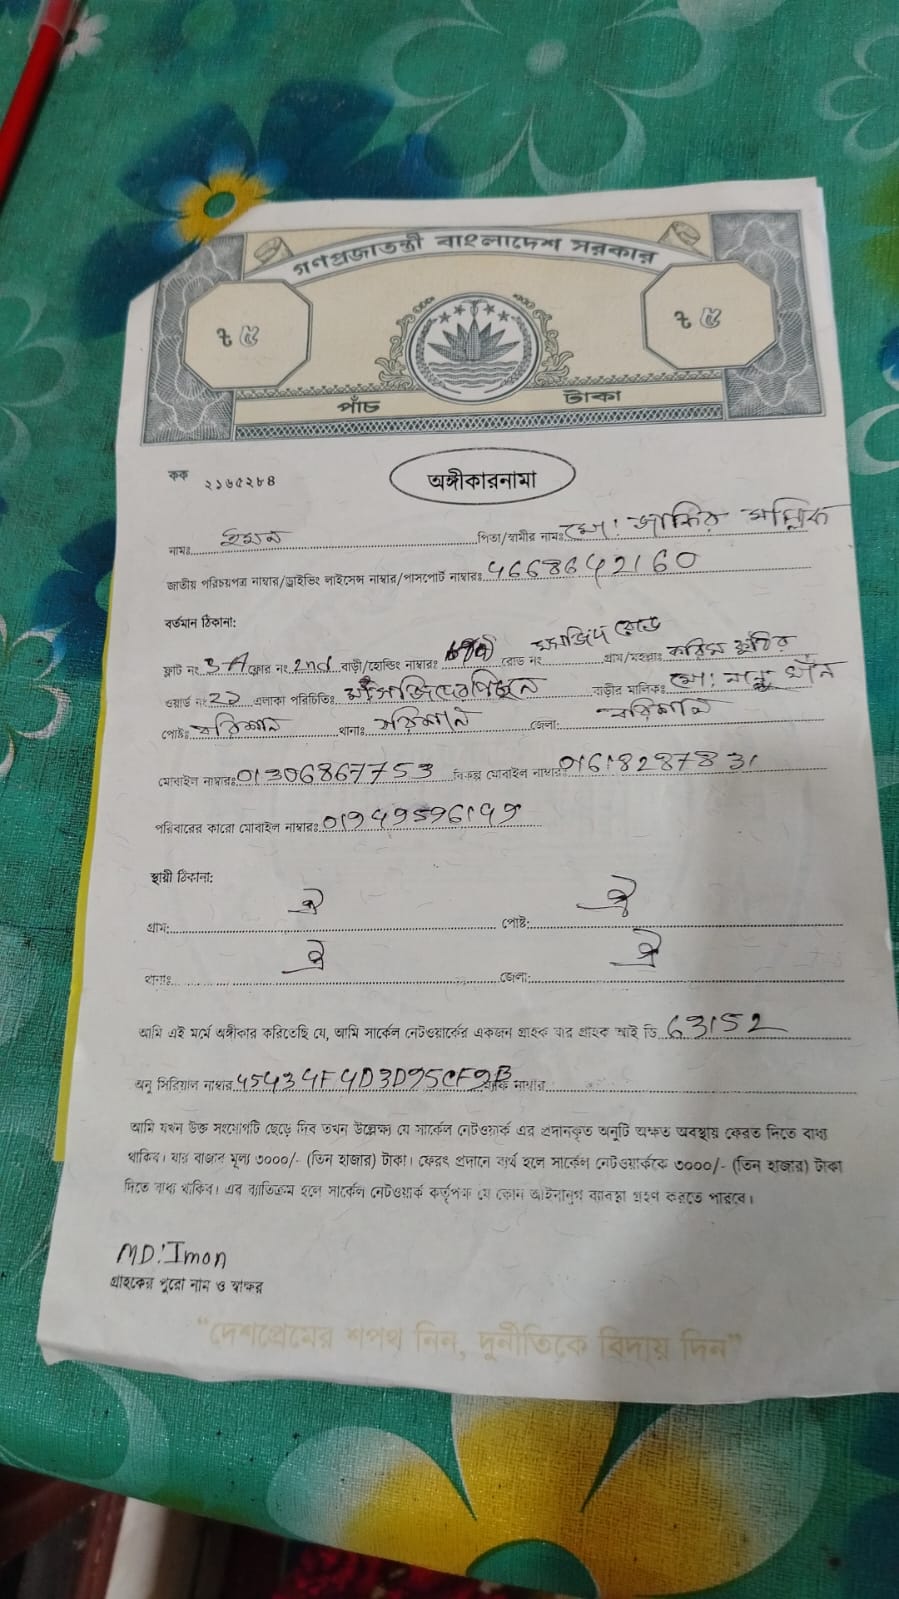 গণপ্রজাতন্ত্রী বাংলাদেশ সরকার
৳ ৫ ৳ ৫
পাঁচ টাকা
কক ২১৬৫২৮৪
অঙ্গীকারনামা
নামঃ ইমন পিতা/স্বামীর নামঃ মো: জাকির মল্লিক
জাতীয় পরিচয়পত্র নাম্বার/ড্রাইভিং লাইসেন্স নাম্বার/পাসপোর্ট নাম্বারঃ 4668642160
বর্তমান ঠিকানা:
ফ্লাট নং 3-A ফ্লোর নং 2nd বাড়ী/হোল্ডিং নাম্বারঃ রোড নং মসজিদ রোড গ্রাম/মহল্লাঃ করিম কুটির
ওয়ার্ড নং 21 এলাকা পরিচিতিঃ মসজিদের পিছনে বাড়ীর মালিকঃ মো: খাঁন
পোষ্টঃ বরিশাল থানাঃ বরিশাল জেলা: বরিশাল
মোবাইল নাম্বারঃ 01306867753 বিকল্প মোবাইল নাম্বারঃ 01618287831
পরিবারের কারো মোবাইল নাম্বারঃ 01949596149
স্থায়ী ঠিকানা:
গ্রাম: ঐ পোষ্ট: ঐ
থানাঃ ঐ জেলা: ঐ
আমি এই মর্মে অঙ্গীকার করিতেছি যে, আমি সার্কেল নেটওয়ার্কের একজন গ্রাহক যার গ্রাহক আই ডি 63152
অনু সিরিয়াল নাম্বার 45434F4D3D95CF9B ম্যাক নাম্বার
আমি যখন উক্ত সংযোগটি ছেড়ে দিব তখন উল্লেক্ষ্য যে সার্কেল নেটওয়ার্ক এর প্রদানকৃত অনুটি অক্ষত অবস্থায় ফেরত দিতে বাধ্য
থাকিব। যার বাজার মূল্য ৩০০০/- (তিন হাজার) টাকা। ফেরৎ প্রদানে ব্যর্থ হলে সার্কেল নেটওয়ার্ককে ৩০০০/- (তিন হাজার) টাকা
দিতে বাধ্য থাকিব। এর ব্যতিক্রম হলে সার্কেল নেটওয়ার্ক কর্তৃপক্ষ যে কোন আইনানুগ ব্যাবস্থা গ্রহণ করতে পারবে।
MD: Imon
গ্রাহকের পুরো নাম ও স্বাক্ষর
“দেশপ্রেমের শপথ নিন, দুর্নীতিকে বিদায় দিন”